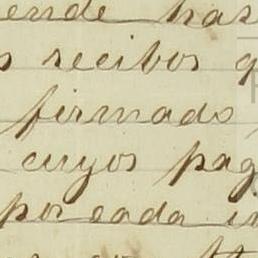 ende has
recibos q
firmado
cuyos pag
por cada in